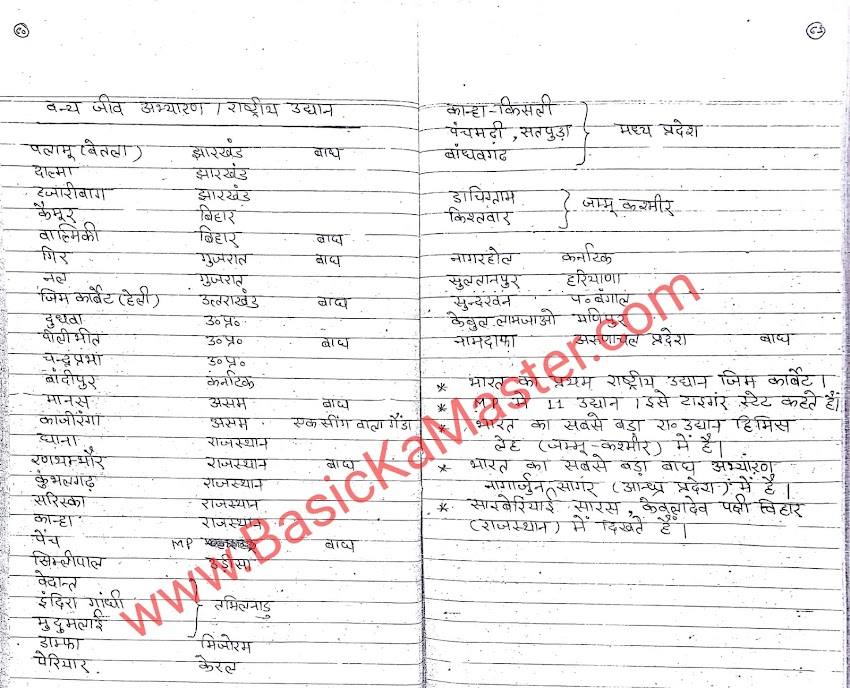 ६०
वन्य जीव अभ्यारण / राष्ट्रीय उद्यान
पलामू (बेतला) झारखंड बाघ
दाल्मा झारखंड
हजारीबाग झारखंड
कैमूर बिहार
वाल्मिकी बिहार बाघ
गिर गुजरात बाघ
नल गुजरात
जिम कार्बेट (हेली) उत्तराखंड बाघ
दुधवा उ०प्र०
पीलीभीत उ०प्र० बाघ
चन्द्रप्रभा उ०प्र०
बांदीपुर कर्नाटक
मानस असम बाघ
काजीरंगा असम एकसींग वाला गैंडा
घाना राजस्थान
रणथम्भौर राजस्थान बाघ
कुंभलगढ़ राजस्थान
सरिस्का राजस्थान
कान्हा राजस्थान
पेंच MP बाघ
सिम्लीपाल उड़ीसा
वेदान्त
इंदिरा गांधी तमिलनाडु
मुदुमलाई
डाम्फा मिजोरम
पेरियार केरल
कान्हा-किसली
पंचमढ़ी, सतपुड़ा मध्य प्रदेश
बांधवगढ
डाचिग्राम
किश्तवार जाम्मू कश्मीर
नागरहोल कर्नाटक
सुलतानपुर हरियाणा
सुन्दरवन प० बंगाल
केबुल लामजाओ मणिपुर
नामदाफा अरुणाचल प्रदेश बाघ
* भारत का प्रथम राष्ट्रीय उद्यान जिम कार्बेट।
* MP में 11 उद्यान । इसे टाइगर स्टेट कहते हैं।
* भारत का सबसे बड़ा रा० उद्यान हिमिस
लेह (जम्मू-कश्मीर) में है।
* भारत का सबसे बड़ा बाघ अभ्यारण
नागार्जुन सागर (आन्ध्र प्रदेश) में है।
* साइबेरियाई सारस, केवलादेव पक्षी विहार
(राजस्थान) में दिखते हैं।
www.BasicKaMaster.com